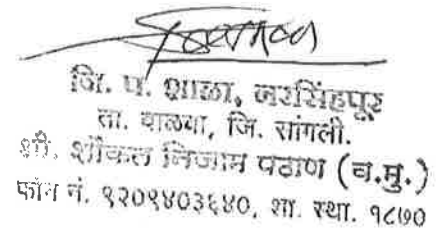 जि. प. शाळा, नरसिंहपूर
ता. वाळवा, जि. सांगली.
श्री. शौकत निजाम पठाण (व.मु.)
फोन नं. ९२०९४०३६४०, शा. स्था. १८७०